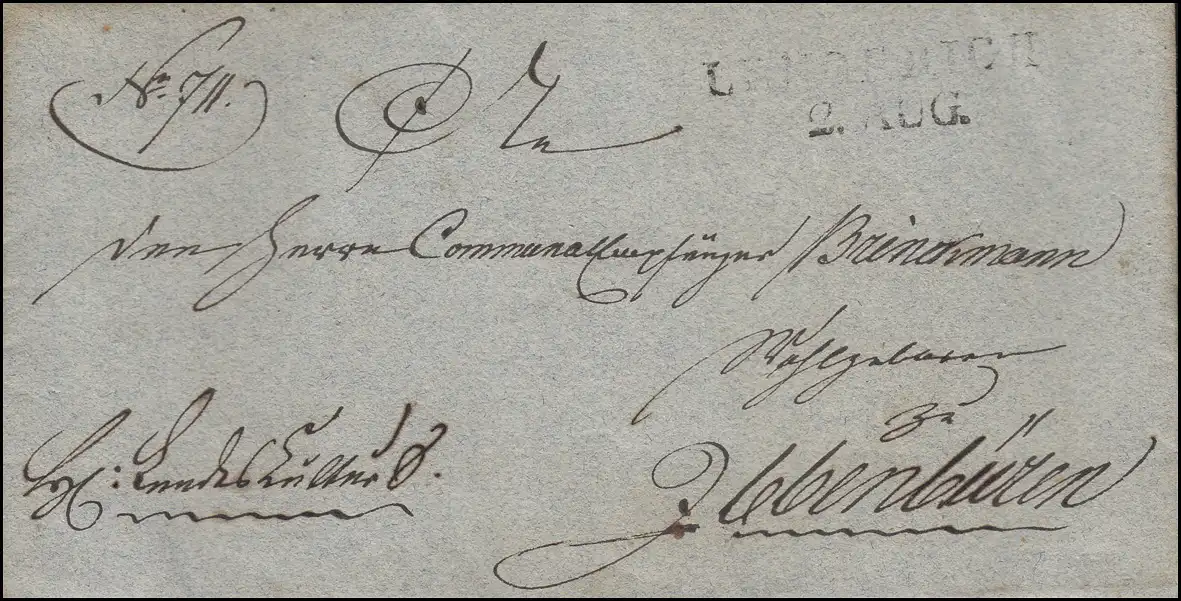 No 711.
An
LENGERICH
2. AUG.
den Herrn Communal Empfänger Brinckmann
Wohlgeboren
zu
Ibbenbüren
Landes Cultur S.